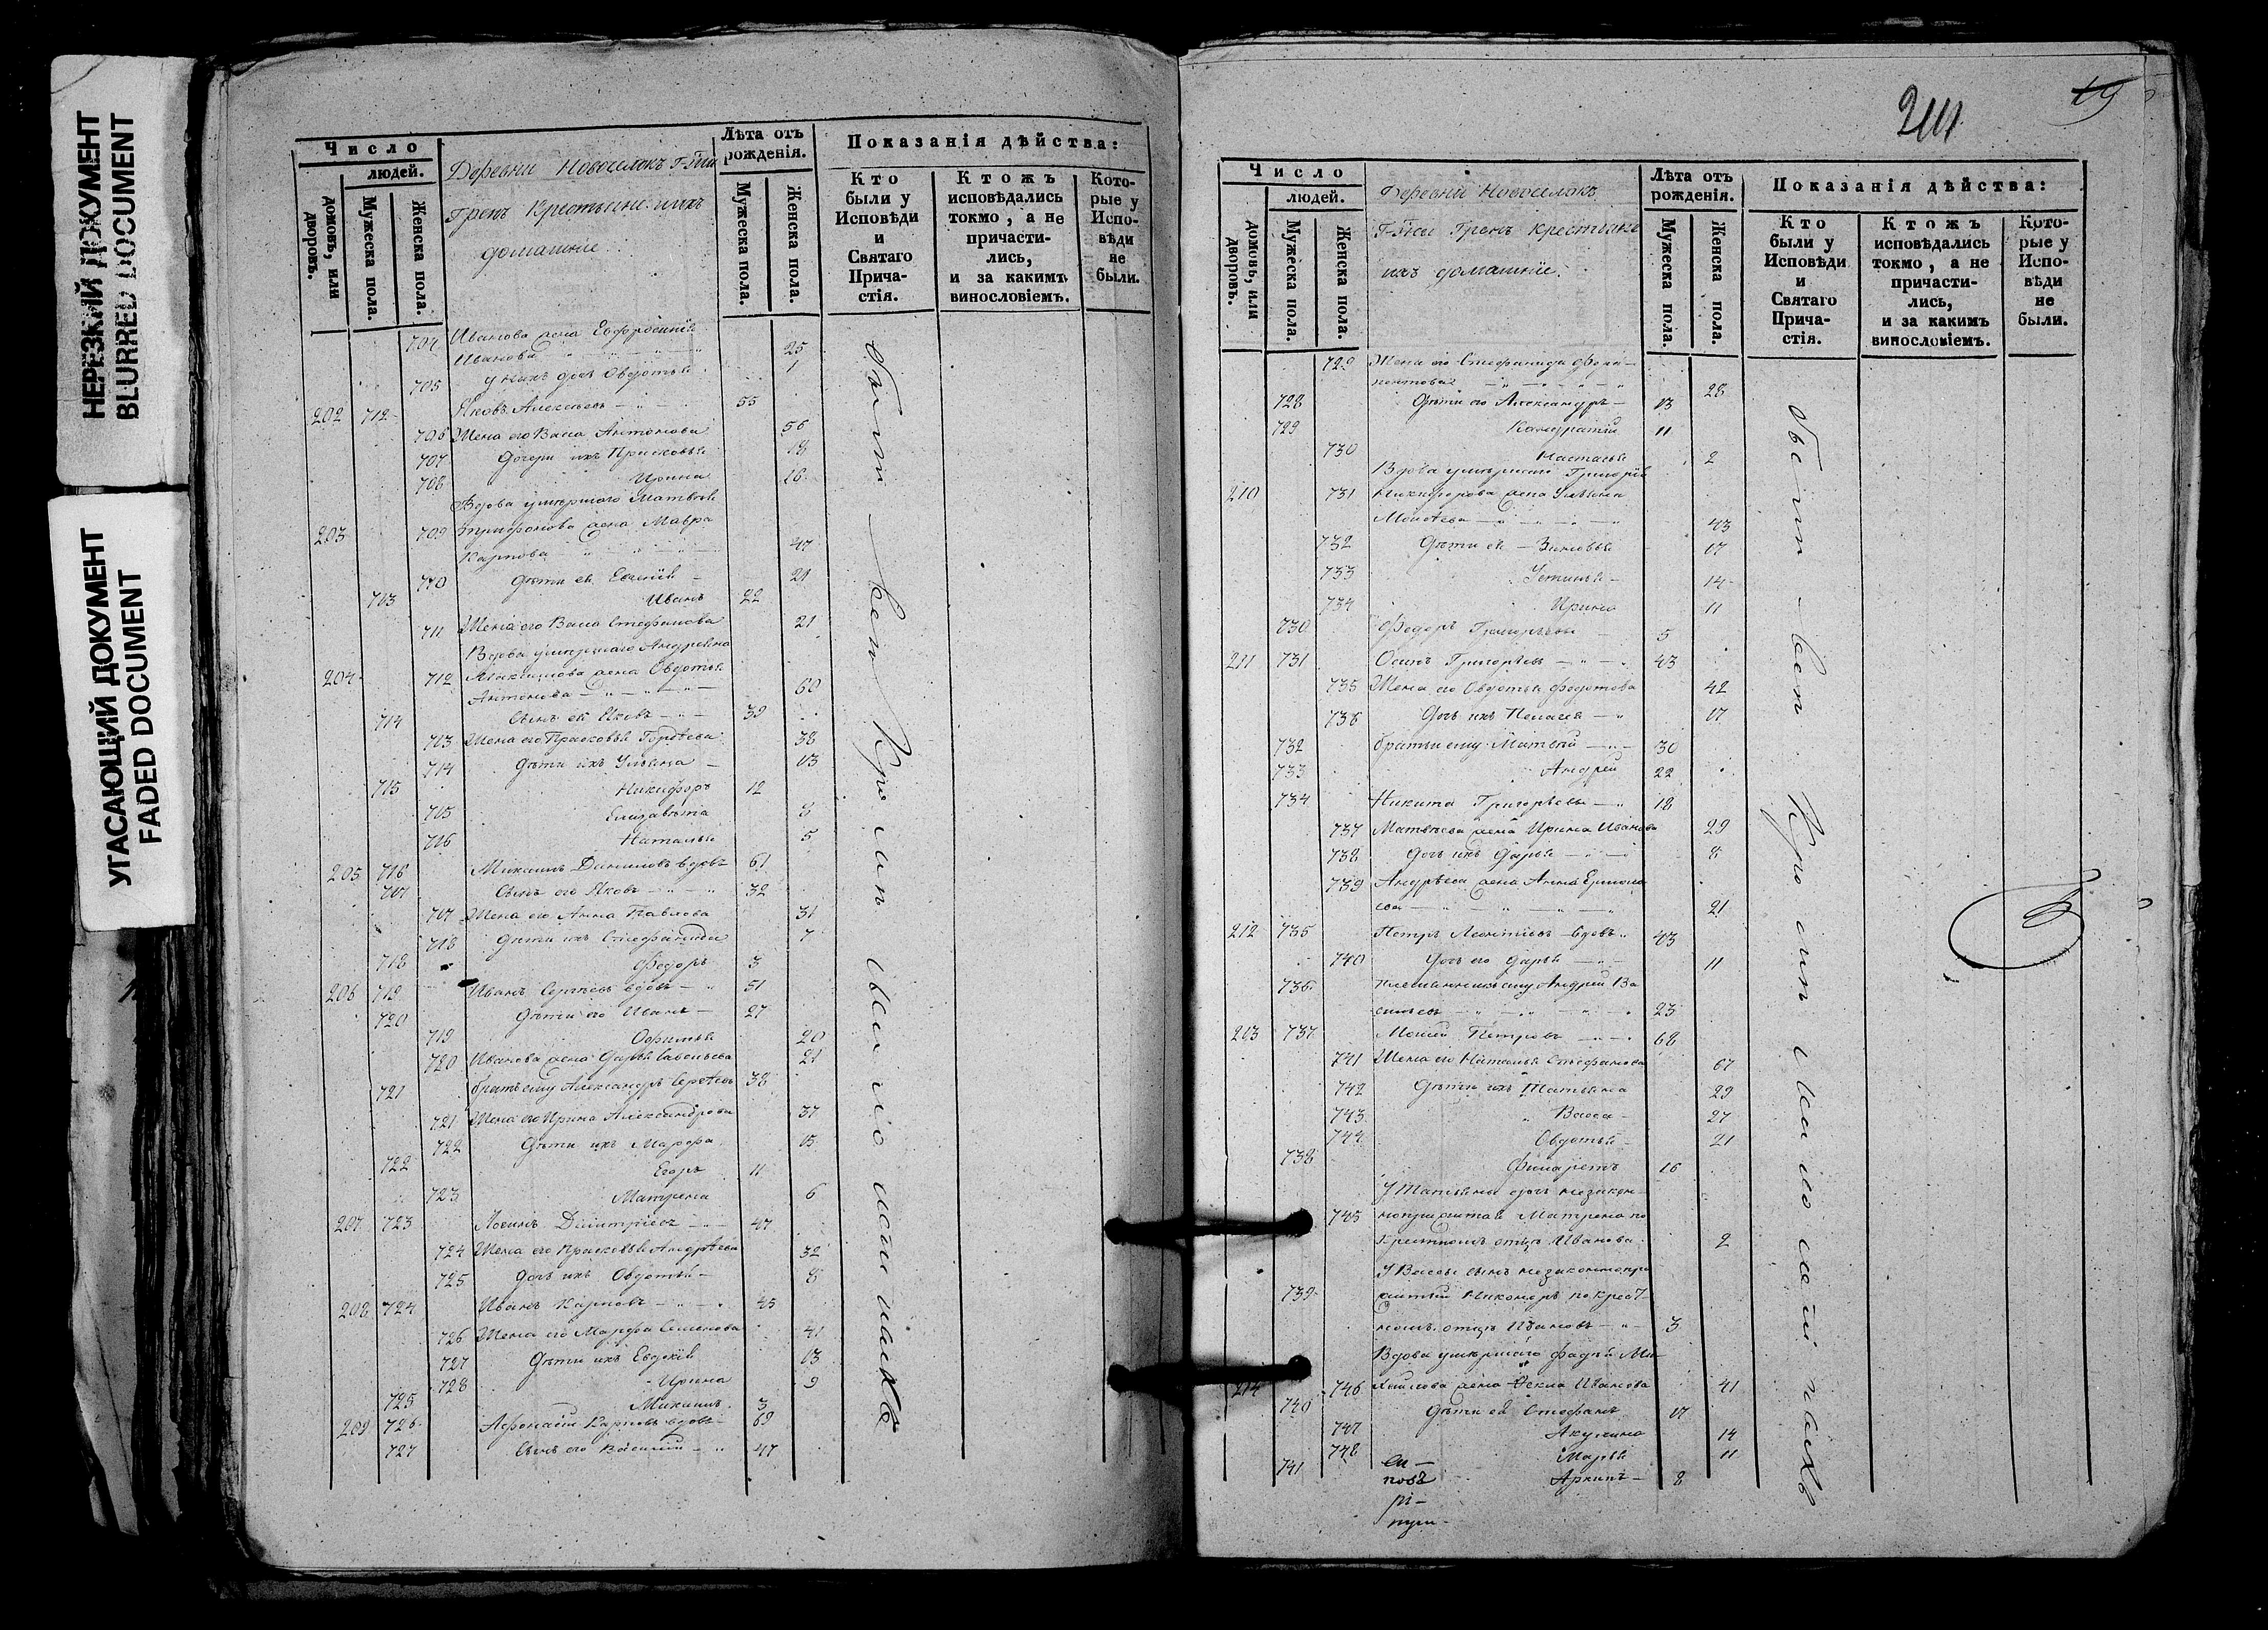 НЕРЕЗКИЙ ДОКУМЕНТ
BLURRED DOCUMENT
УГАСАЮЩИЙ ДОКУМЕНТ
FADED DOCUMENT
Число
людей.
домовъ, или дворовъ.
Мужеска пола.
Женска пола.
Деревни Новоселокъ Г-жи
Грекъ Крестьяне и ихъ
домашніе.
Лѣта отъ рожденія.
Мужеска пола.
Женска пола.
Показанія дѣйства:
Кто были у Исповѣди и Святаго Причастія.
Ктожъ исповѣдались токмо, а не причастились, и за какимъ винословіемъ.
Которые у Исповѣди не были.
704 Иванова жена Евфросинія
Иванова 25
705 у нихъ дочь Овдотья 1
202 712 Яковъ Алексѣевъ 55
706 Жена его Васа Антонова 56
707 Дочери ихъ Прасковья 18
708 Ирина 16
Вдова умершаго Матвѣя
203 709 Трифонова жена Мавра
Карпова 47
710 Дѣти ея Евгенія 21
713 Иванъ 22
711 Жена его Васа Стефанова 21
Вдова умершаго Андреяна
204 712 Максимова жена Овдотья
Антонова 60
714 Сынъ ея Яковъ 39
713 Жена его Прасковья 38
714 Дѣти ихъ Ульяна 13
715 Никифоръ 12
715 Елизавета 8
716 Наталья 5
205 716 Михаилъ Даниловъ вдовъ 61
717 Сынъ его Яковъ 32
717 Жена его Анна Павлова 31
718 Дѣти ихъ Стефанида 7
718 Федоръ 3
206 719 Иванъ Сергѣевъ вдовъ 51
720 Дѣти его Иванъ 27
719 Офимья 20
720 Иванова жена Дарья Савельева 21
721 братъ ему Александръ Сергѣевъ 38
721 Жена его Ирина Александрова 37
722 Дѣти ихъ Марфа 15
722 Егоръ 11
723 Матрена 6
207 723 Логинъ Димитріевъ 47
724 Жена его Прасковья Андрѣева 32
725 Дочь ихъ Овдотья 8
208 724 Иванъ Карповъ 45
726 Жена его Марфа Семенова 41
727 Дѣти ихъ Евдокія 13
728 Ирина 9
725 Михаилъ 3
209 726 Афонасій Карповъ вдовъ 69
727 Сынъ его Василій 47
были
всѣ
19
Число
людей.
домовъ, или дворовъ.
Мужеска пола.
Женска пола.
Деревни Новоселокъ
Г-жи Грекъ крестьяне
ихъ домашніе.
Лѣта отъ рожденія.
Мужеска пола.
Женска пола.
Показанія дѣйства:
Кто были у Исповѣди и Святаго Причастія.
Ктожъ исповѣдались токмо, а не причастились, и за какимъ винословіемъ.
Которые у Исповѣди не были.
729 Жена его Стефанида
28
728 Дѣти его Александръ 13
729 Кондратій 11
730 Настасья 2
Вдова умершаго Григорія
210 731 Никифорова жена Ульяна
Моисѣева 43
732 Дѣти ея Зиновья 17
733 Устинья 14
734 Ирина 11
730 Федоръ Григорьевъ 5
211 731 Осипъ Григорьевъ 43
735 Жена его Овдотья Федотова 42
736 Дочь ихъ Пелагея 17
732 братья ему Матвѣй 30
733 Андрей 22
734 Никита Григорьевъ 18
737 Матвѣева жена Ирина Иванова 29
738 Дочь ихъ Дарья 8
739 Андрѣева жена Анна Ермола
ева 21
212 735 Петръ Леонтьевъ вдовъ 43
740 Дочь его Дарья 11
736 племянникъ ему Андрей Ва
сильевъ 23
213 737 Моисей Петровъ 68
741 Жена его Наталья Стефанова 67
742 Дѣти ихъ Татьяна 29
743 Васса 27
744 Овдотья 21
738 Филаретъ 16
У Татьяны дочь незакон-
745 норожитая Матрена по
крестномъ отцѣ Иванова 2
У Вассы сынъ незаконнопри
739 житый Никоноръ по крест
номъ отцѣ Ивановъ 3
Вдова умершаго Фадѣя Ми
214 746 хайлова жена Фекла Иванова 41
740 Дѣти ея Стефанъ 17
747 Акулина 14
748 Марья 11
741 Архипъ 8
были
всѣ